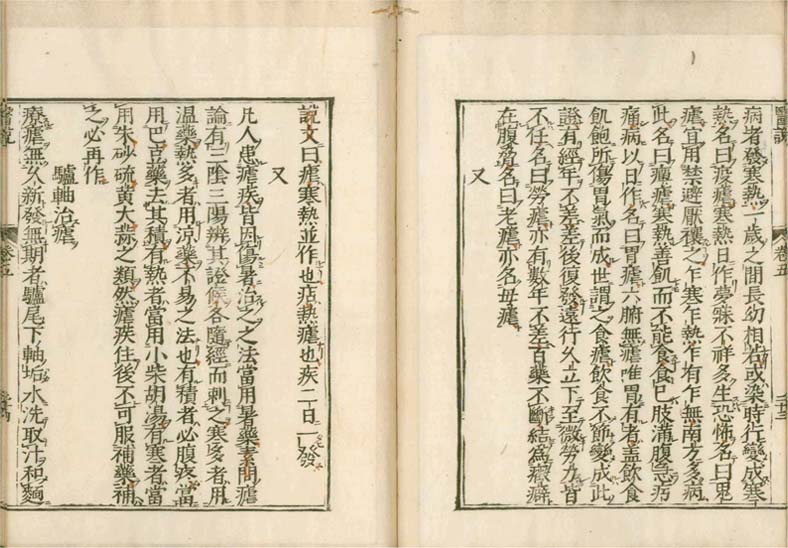 醫說 卷五
病者發寒熱一歲之間長幼相若或染時行變成寒
熱名曰疫瘧寒熱日作夢寐不祥多生恐怖名曰鬼
瘧宜用禁避厭禳之乍寒乍熱乍有乍無南方多病
此名曰瘴瘧寒熱善飢而不能食食已肢滿腹急疠
痛病以日作名曰胃瘧六腑無瘧唯胃有者蓋飲食
飢飽所傷胃氣而成世謂之食瘧飲食不節變成此
證有經年不差差後復發遠行久立下至微勞力皆
不任名曰勞瘧亦有數年不差百藥不斷結為癥癖
在腹脅名曰老瘧亦名母瘧
又
說文曰瘧寒熱並作也痁熱瘧也疾二日一發
又
凡人患瘧疾皆因傷暑治之之法當用暑藥素問瘧
論有三陰三陽辨其證候各隨經而刺之寒多者用
溫藥熱多者用涼藥不易之法也有積者必腹疼當
用巴豆藥去其積有熱者當用小柴胡湯有寒者當
用朱砂硫黃大蒜之類然瘧疾住後不可服補藥補
之必再作
驢軸治瘧
療瘧無久新發無期者驢尾下軸垢水洗取汁和麵
醫說 卷五